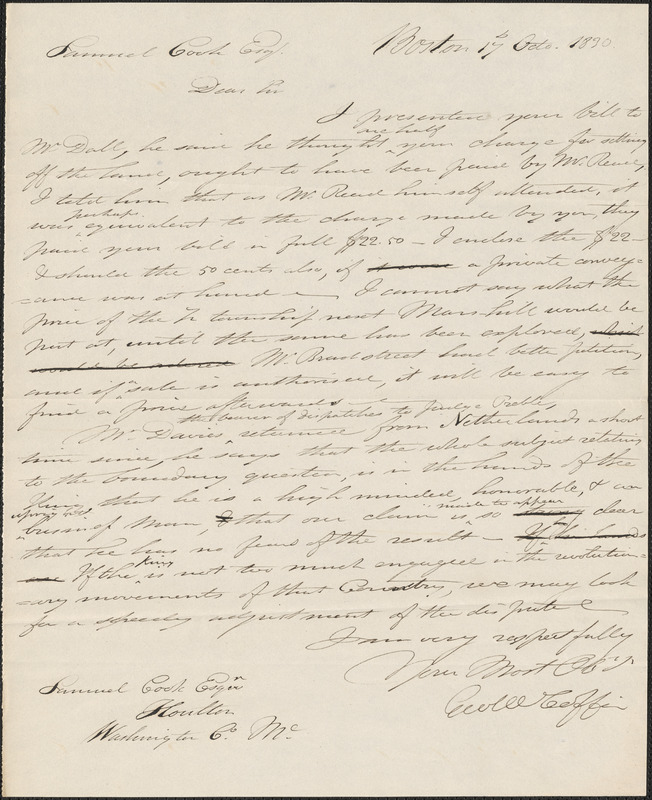 Boston 17th Octo. 1830
Samuel Cook Esqr.
Dear Sir
I presented your bill to
Mr Dall, he said he thought one half your charge for setting
off the land, ought to have been paid by Mr Read,
I told him that as Mr. Read himself attended, it
was perhaps equivalent to the charge made by you, they
paid your bill in full $22.50 — I enclose the $22—
& should the 50 cents also, if a private convey=
=ance was at hand — I cannot say what the
price of the ½ township next Mars hill would be
put at, until the same has been explored,
Mr. Bradstreet had better petition,
and if a sale is authorised, it will be easy to
find a price afterwards —
Mr. Davis the bearer of dispatches to Judge Preble, returned from Netherlands a short
time since, he says that the whole subject relating
to the boundary question, is in the hands of the
King that he is a high minded, honorable, &
business man, & that our claim is made to appear so clear
that he has no fear of the result —
If the King is not too much engaged in the revolution=
=ary movements of that Country, we may look
for a speedy adjustment of the dispute
I am very respectfully
Your Most Obt
Geo W Coffin
Samuel Cook Esqr
Houlton
Washington Co. Me